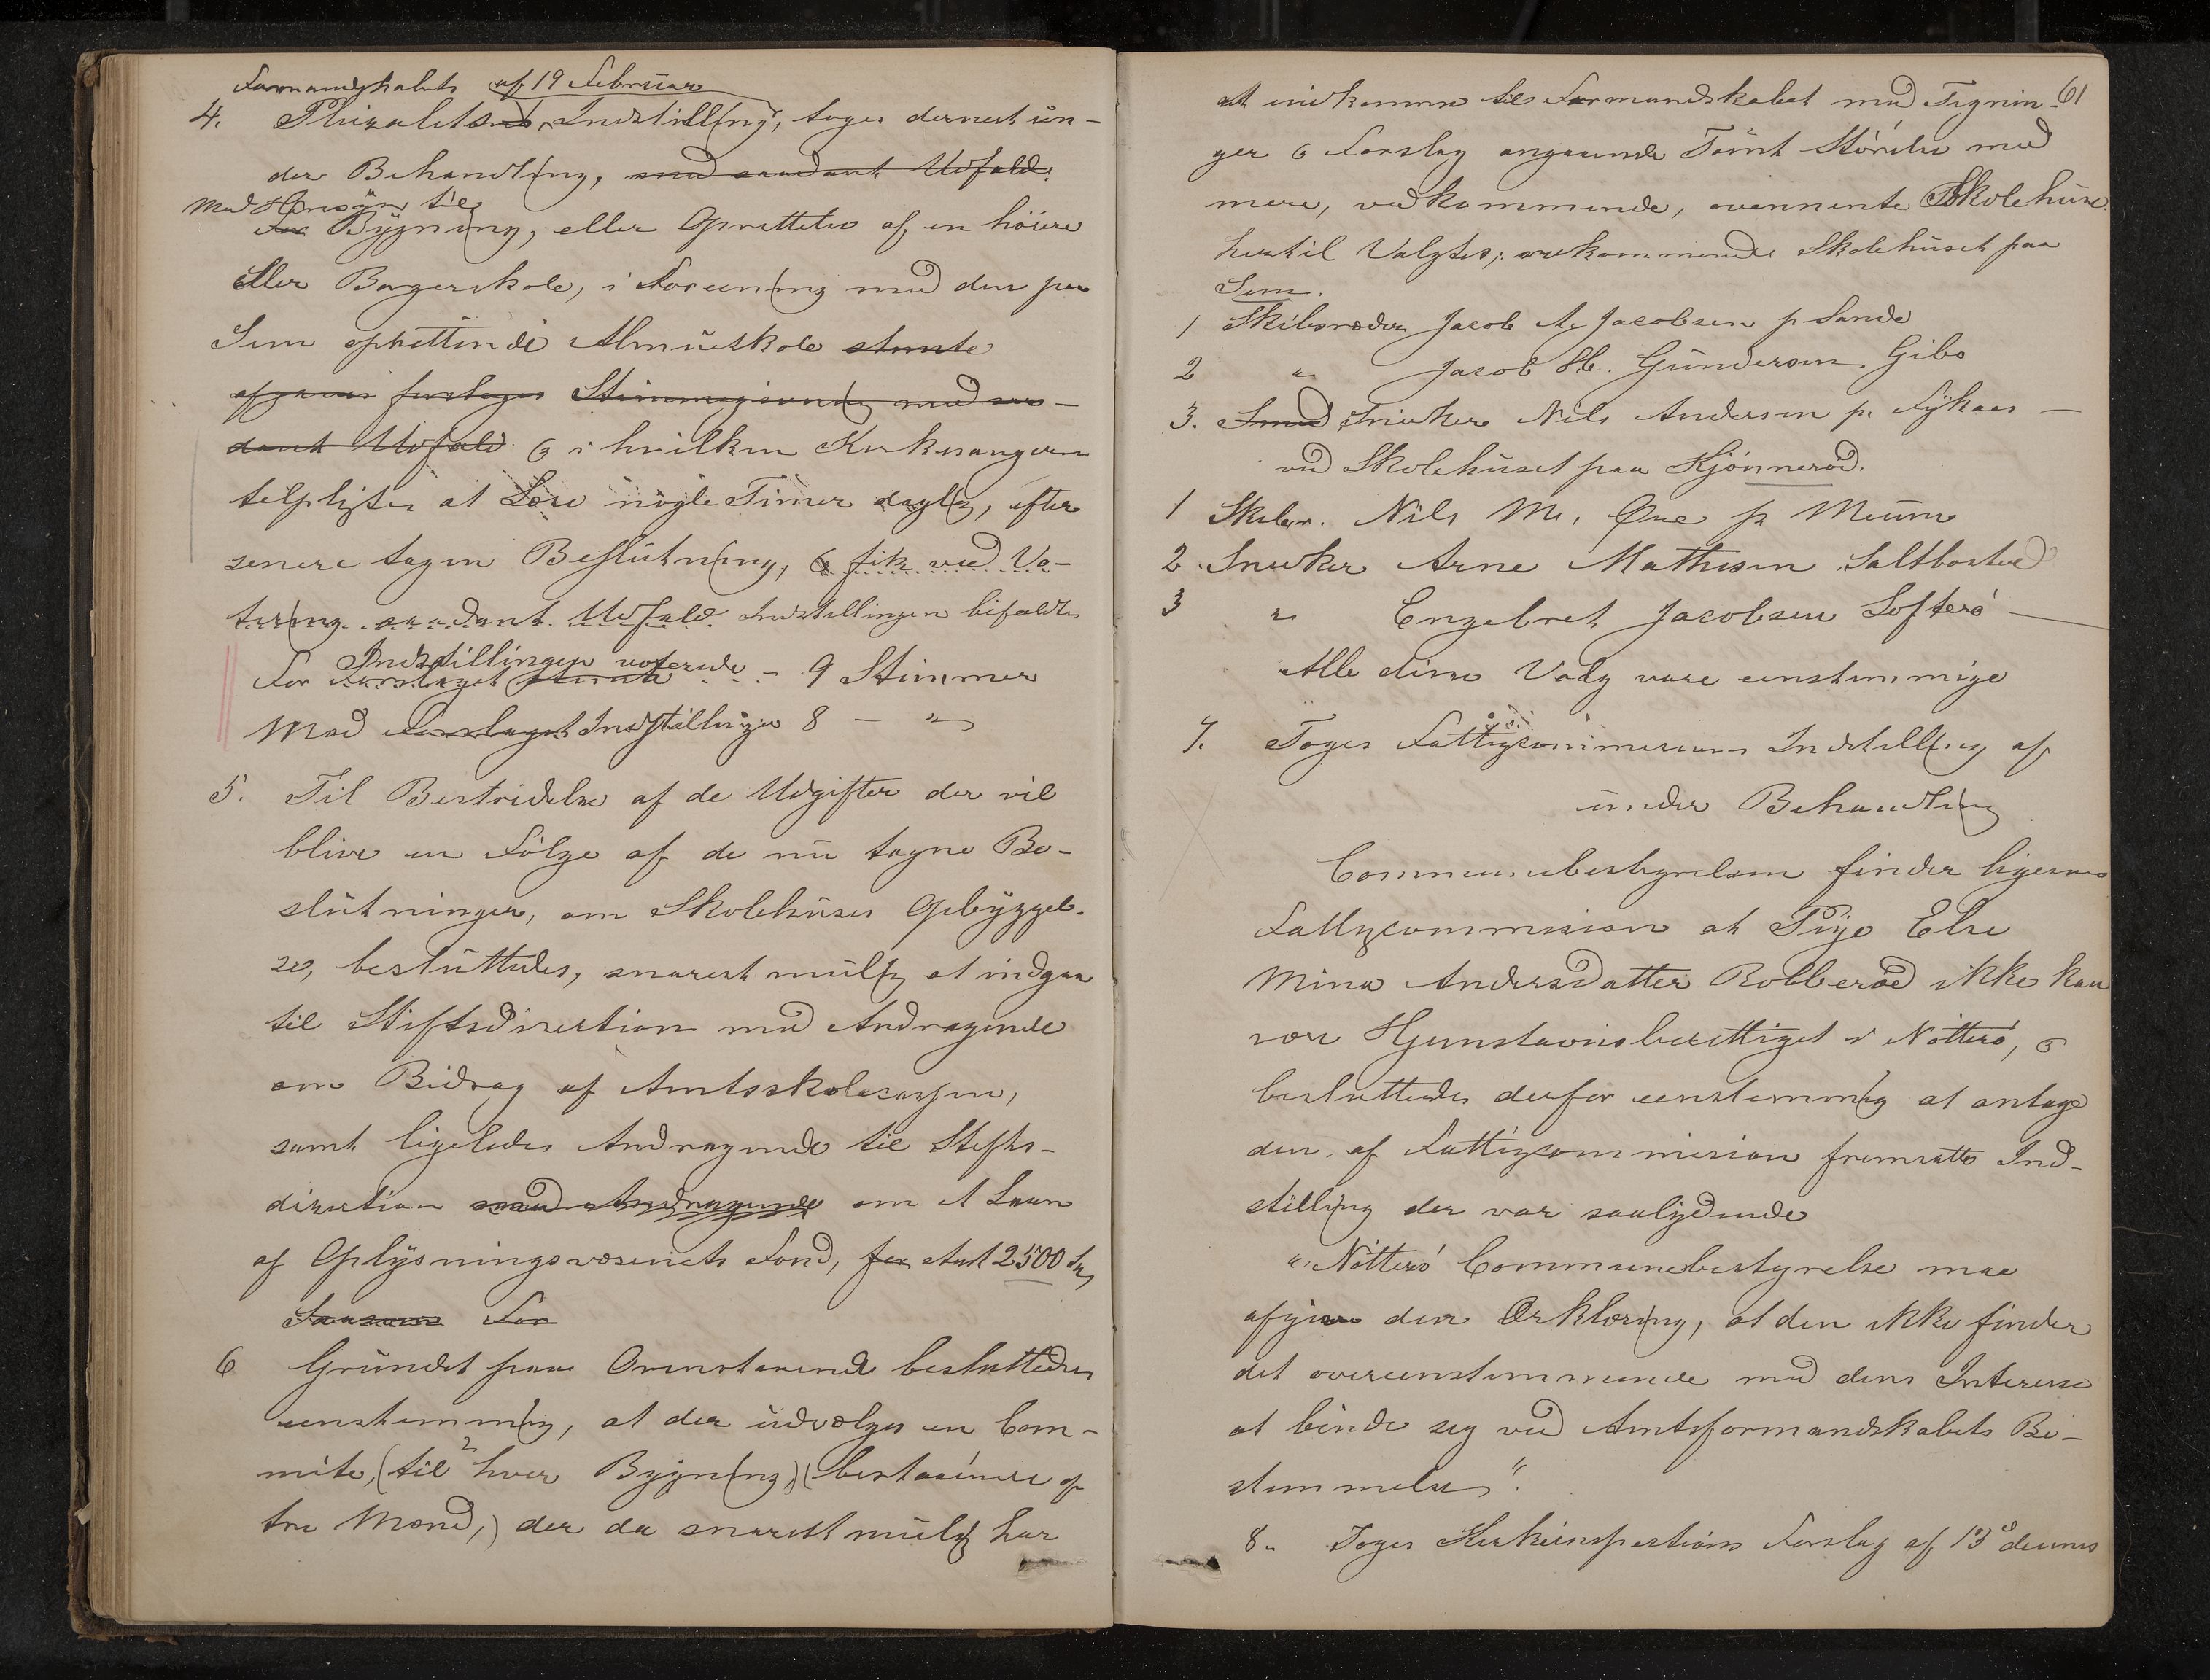 Formandskabets af 19 Februar
4. Pluralitets Indstilling, toges dernest un-
der Behandling, med saadant Udfald.
Med Hensyn til
for Bygning, eller Oprettelse af en höiere
Eller Borgerskole, i Forening med den paa
Sem oprettende Almueskole stemte
afgaves forslages Stimmegivning med saa-
dant Udfald & i hvilken Kirkesangeren
tilpligtes at Lære nogle Timer daglig, efter
senere tagen Beslutning, & fik ved Vo-
tering saadant Udfald Indstillingen bifaldtes
Indstillingen voterede
For Forslaget stemte - 9 Stimmer
Mod Forslaget Indstillingen 8 — "
5. Til Bestridelse af de Udgifter der vil
blive en Fölge af de nu tagne Be-
slutninger, om Skolehuses Opbyggel-
se, besluttedes, snarest mulig at indgaa
til Stiftsdirection med Andragende
om Bidrag af Amtsskolecassen,
samt ligeledes Andragende til Stifts-
direction med Andragende om et Laan
af Oplysningsvæsenets Fond, for stort 2500 Sp
Saasom For
6 Grundet paa Ovenstaaende besluttedes
eenstemmig, at der udvælges en Com-
mite, (til hver Bygning) (bestaaende af
tre Mænd,) der da snarest mulig har
61
at indkomme til Formandskabet med Tegnin-
ger & Forslag angaaende Tomt Störrelse med
mere, vedkommende, ovennevnte Skolehuse.
hertil Valgtes, vedkommende Skolehuset paa
Sem.
1 Skibsreder Jacob A. Jacobsen p Sande
2 " Jacob H. Gundersen Gibo
3. Smed Snedker Nils Andersen p. Lykaas —
ved Skolehuset paa Kjönneröd.
1 Skibsr. Nils M. Öre p Meum
2. Snedker Arne Mathisen Saltbosted
3 " Engebret Jacobsen Lofterö —
Alle disse Valg vare eenstemmige
7. Toges Fattigcommissions Indstilling af
under Behandling
Communebestyrelsen finder ligesom
Fattigcommission at Pige Else
Mina Andersdatter Robberöd ikke kan
være Hjemstavnsberettiget i Nötterö, &
besluttedes derfor eenstemmig at antage
den, af Fattigcommission fremsatte Ind-
stilling der var saalydende
"Nötterö Communebestyrelse maa
afgive den Erklæring, at den ikke finder
det overeenstemmende med dens Interesse
at binde seg ved Amtsformandskabets Be-
stemmelse".
8. Toges Kirkeinspections Forslag af 13de dennes